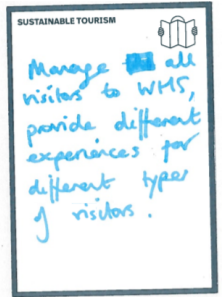 SUSTAINABLE TOURISM
Manage all
visitors to WHS,
provide different
experiences for
different types
of visitors.